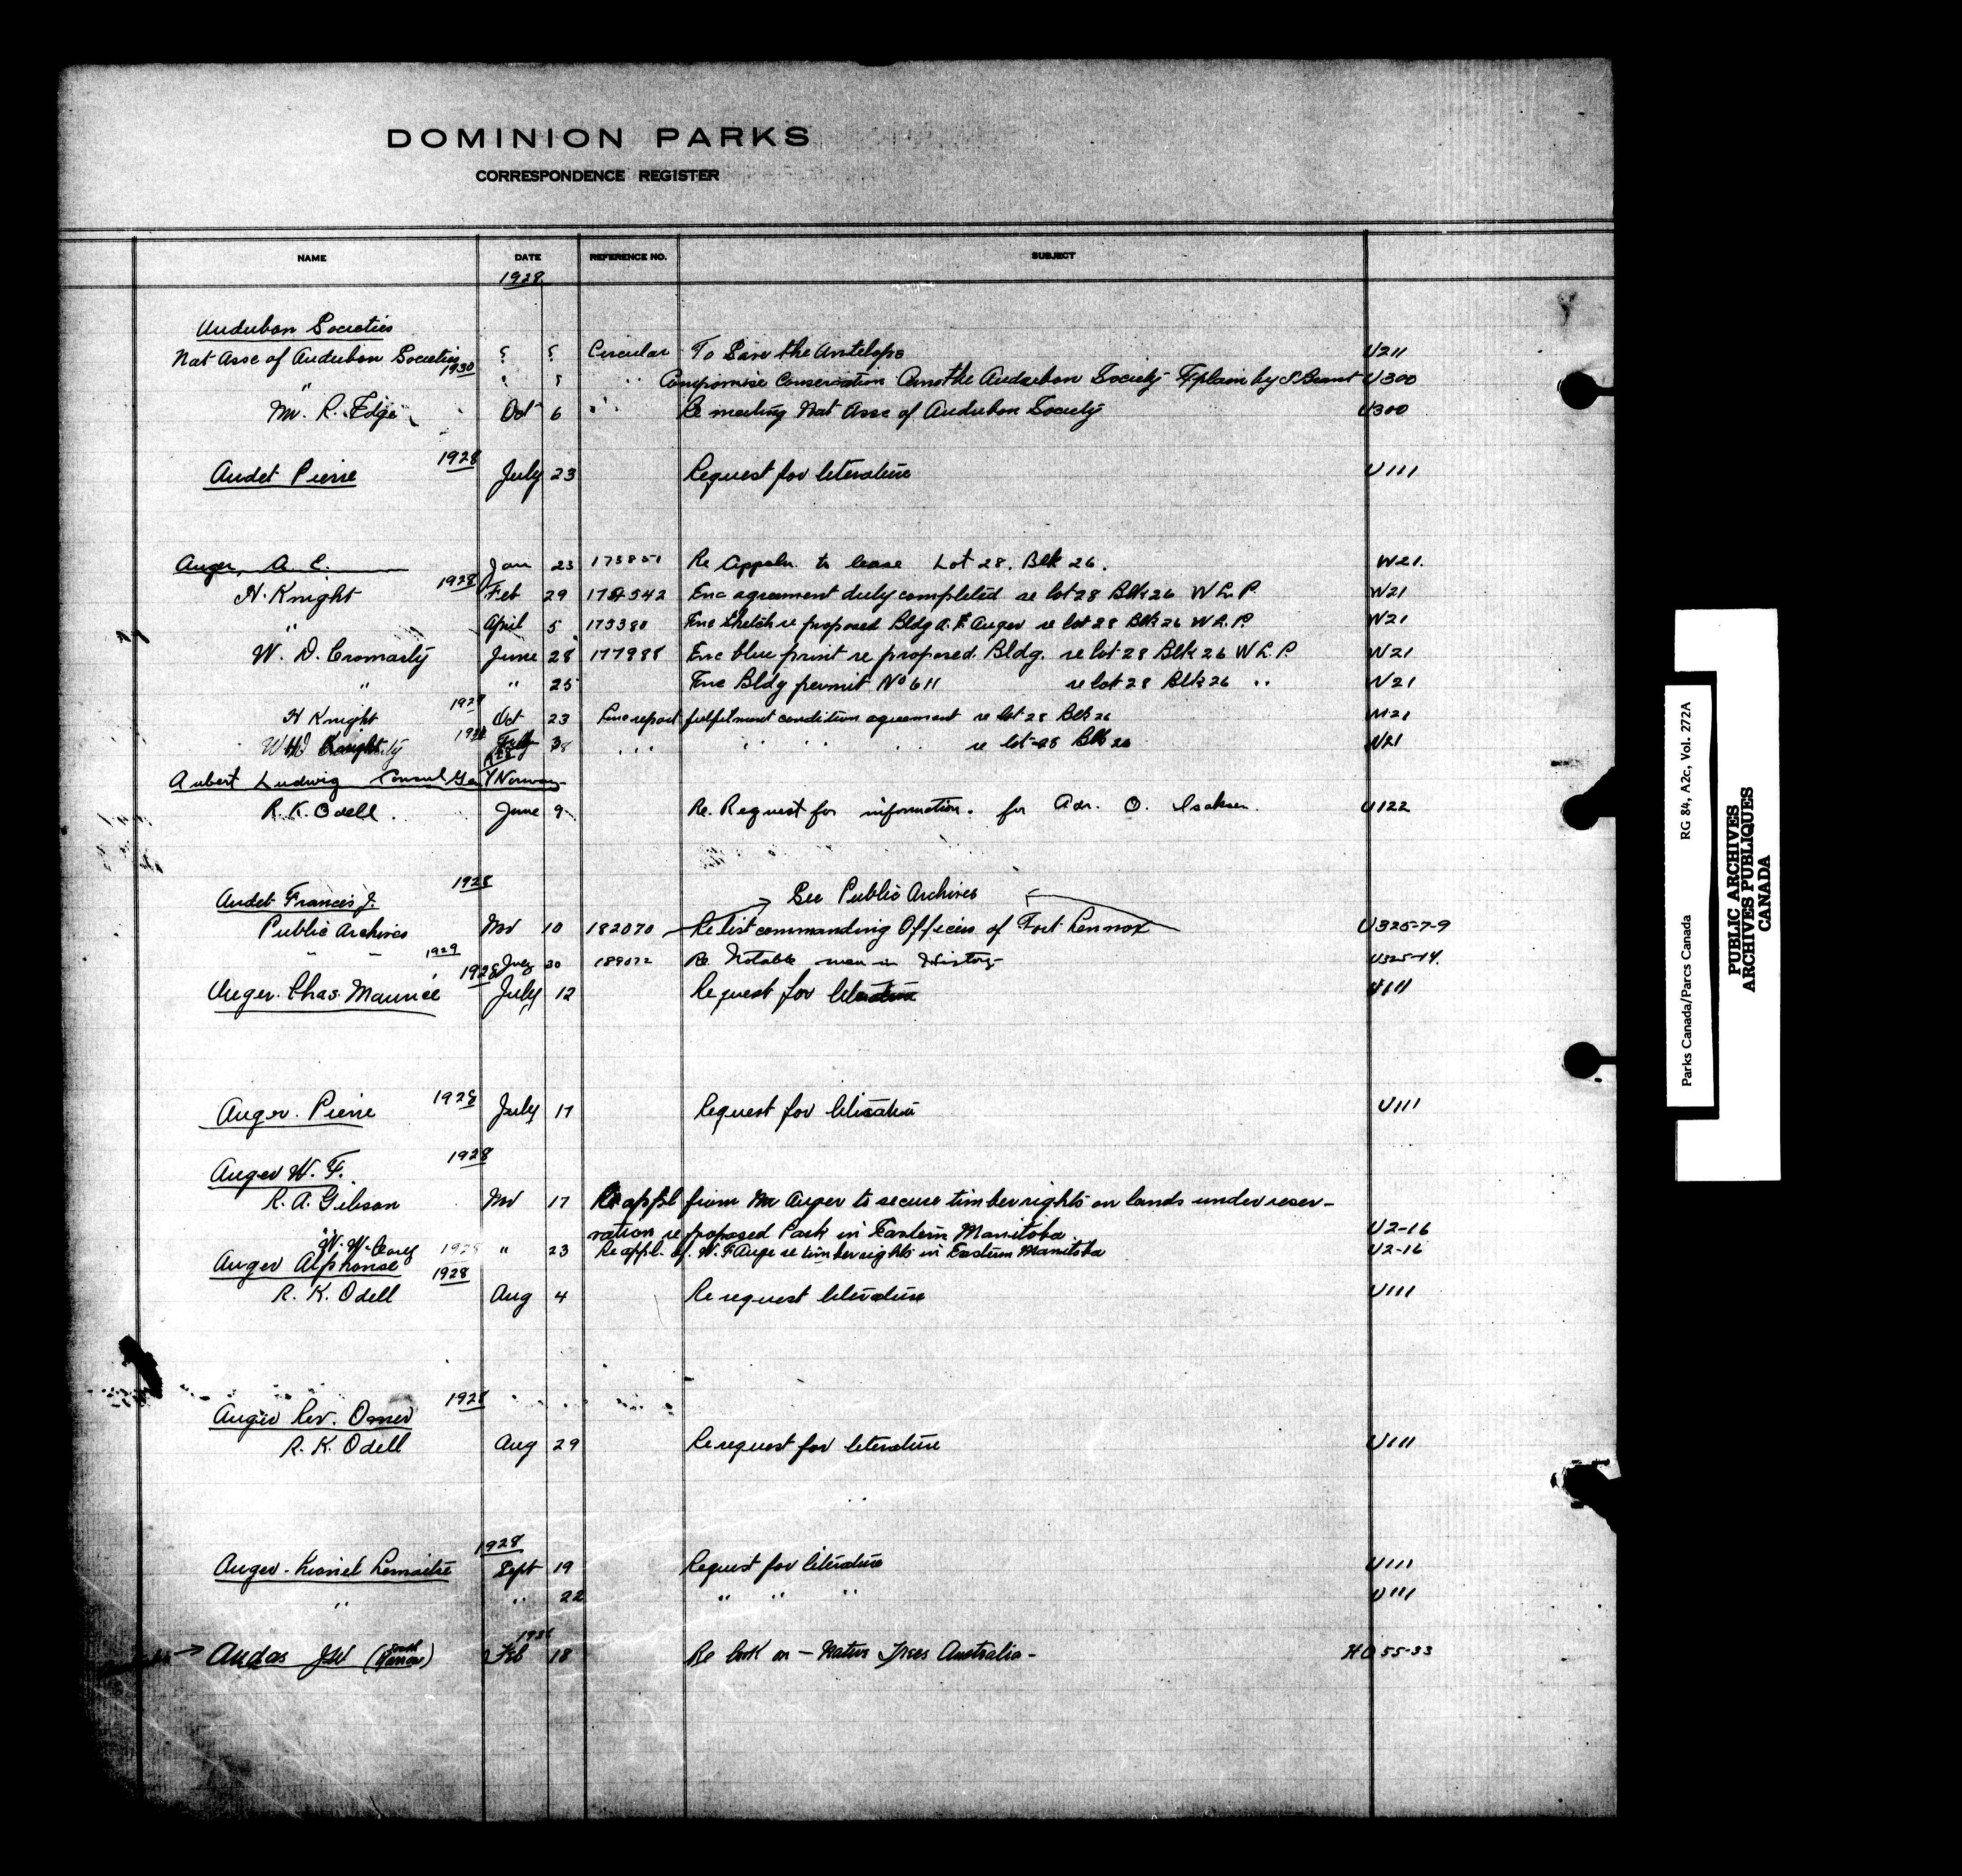 DOMINION PARKS
CORRESPONDENCE REGISTER
NAME DATE REFERENCE NO. SUBJECT
1928
Audubon Societies
Nat Assc of Audubon Societies ? ? Circular To Save the Antelope U211
1930
" " Compromise Conservation Audubon Society Explain by U300
R. Edge Oct 6 Re meeting Nat Assc of Audubon Society U300
1928
Audet Pierre July 23 Request for literature U111
Auger, A. E. Jan 23 Re Appln. to lease Lot 28. Blk 26. W21.
1928
H. Knight Feb 29 542 Enc agreement duly completed re lot 28 Blk 26 W L. P. W21
" April 5 175380 Enc Sketch re proposed Bldg A. E. Auger re lot 28 Blk 26 W L. P. W21
W. D. Cromarty June 28 177988 Enc blue print re proposed Bldg. re lot 28 Blk 26 W L. P. W21
" " 25 Enc Bldg permit No 611 re lot 28 Blk 26 " W21
H Knight Oct 23 Enc report fulfilment condition agreement re lot 28 Blk 26 W21
re lot 28 Blk 26 W21
Aubert Ludwig Consul Gen / Norway
R. K. Odell. June 9 Re. Request for information. for O. Isaksen. U122
1928
Audet Francis J. See Public Archives
Public Archives Nov 10 182070 Re list commanding Officers of Fort Lennox U325-7-9
1929
" " July 30 189072 Re Notable men in History U325-14.
1928
Auger. Chas. Maurice July 12 Request for literature U111
Auger. Pierre 1928 July 17 Request for literature U111
1928
Auger W. F.
R. A. Gibson Nov 17 Re appl from Mr Auger to secure timber rights on lands under reser-
vation re proposed Park in Eastern Manitoba U2-16
W. W. Cory 1928 " 23 Re appl. of W. F Auger re timber rights in Eastern Manitoba U2-16
Auger Alphonse 1928
R. K. Odell Aug 4 Re request literature U111
1928
Auger Rev. Omer
R. K. Odell Aug 29 Re request for literature U111
1928
Auger - Lionel Lemaitre Sept 19 Request for literature U111
" " 22 " " " U111
Audas JW Feb 18 Re book on - Native Trees Australia - 55-33
Parks Canada/Parcs Canada RG 84, A2c, Vol. 272A
PUBLIC ARCHIVES
ARCHIVES PUBLIQUES
CANADA